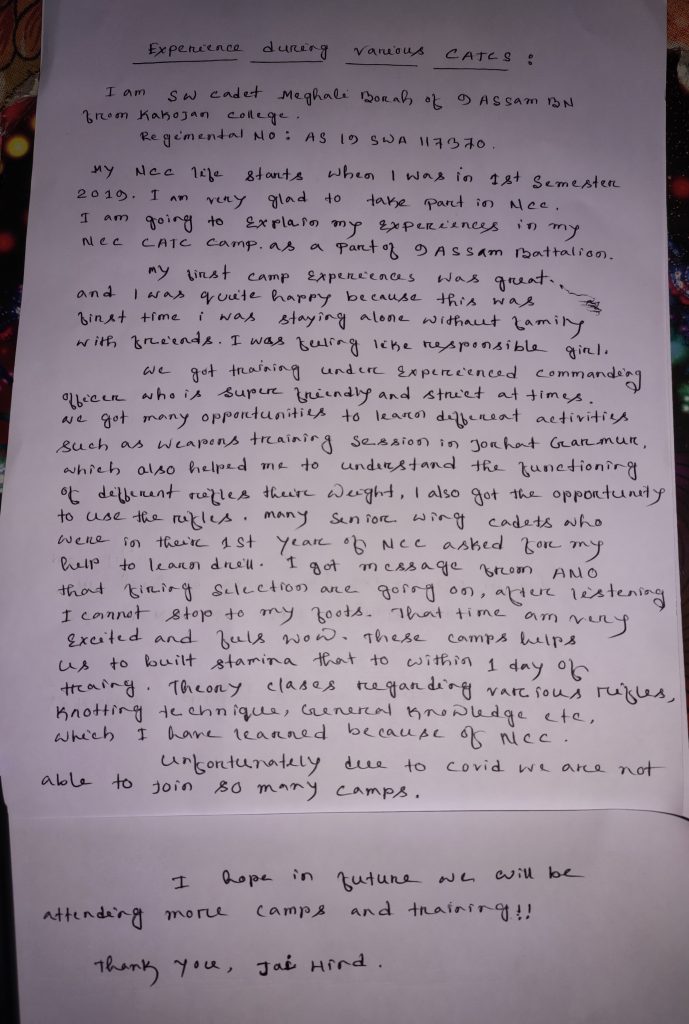 Experience during various CATCS :
I am SW cadet Meghali Borah of 9 ASSAM BN
from Kakojan college.
Regimental No : AS 19 SWA 117370.
My NCC life starts when I was in 1st Semester
2019. I am very glad to take part in NCC.
I am going to Explain my Experiences in my
NCC CATC camp. as a part of 9 ASSAM Battalion.
My first camp Experiences was great.
and I was quite happy because this was
first time i was staying alone without family
with friends. I was feeling like responsible girl.
We got training under Experienced commanding
officer who is super friendly and strict at times.
We got many opportunities to learn different activities
such as weapons training session in Jorhat Garmur,
which also helped me to understand the functioning
of different rifles their weight, I also got the opportunity
to use the rifles. many senior wing cadets who
were in their 1st year of NCC asked for my
help to learn drell. I got message from ANO
that firing selection are going on, after listening
I cannot stop to my foots. That time am very
Excited and fuls wow. These camps helps
us to built stamina that to within 1 day of
traing. Theory clases regarding various rifles,
Knotting technique, General Knowledge etc,
which I have learned because of NCC.
Unfortunately due to covid we are not
able to join so many camps.
I hope in future we will be
attending more camps and training!!
Thank you, Jai Hind.